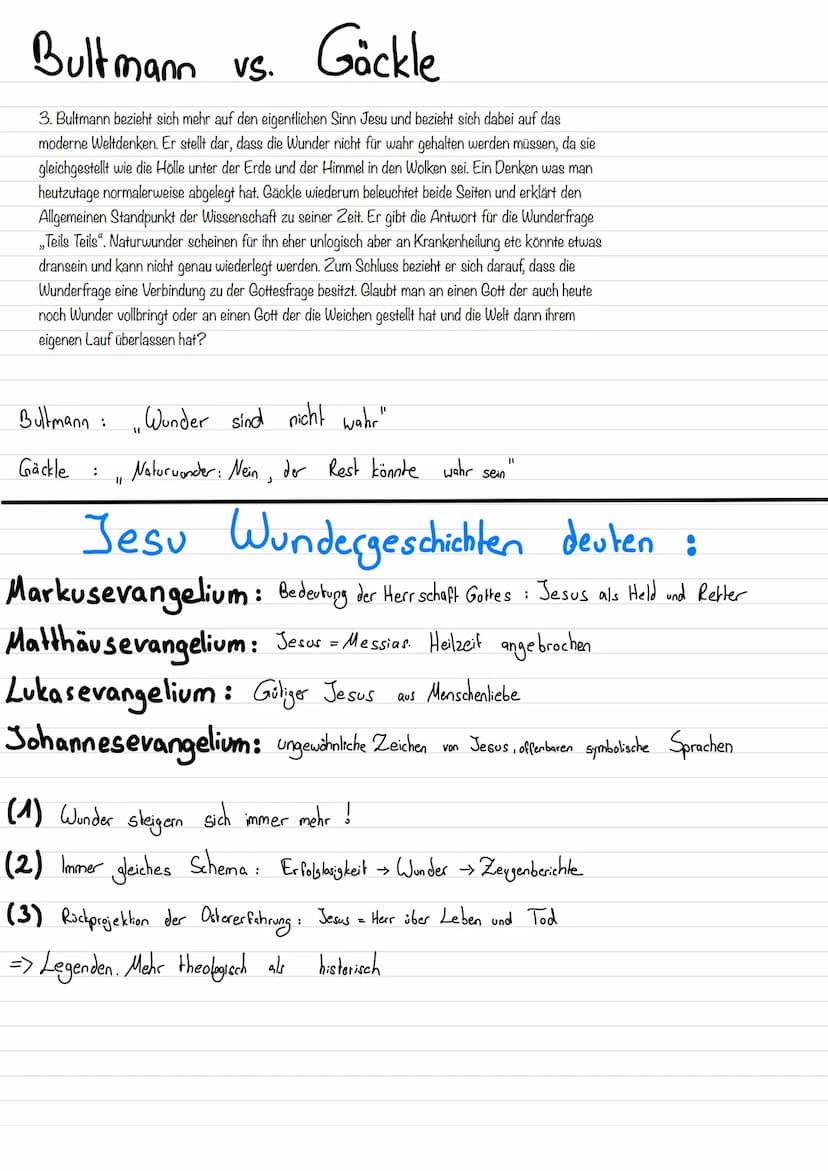 Bultmann vs. Gäckle
3. Bultmann bezieht sich mehr auf den eigentlichen Sinn Jesu und bezieht sich dabei auf das
moderne Weltdenken. Er stellt dar, dass die Wunder nicht für wahr gehalten werden müssen, da sie
gleichgestellt wie die Hölle unter der Erde und der Himmel in den Wolken sei. Ein Denken was man
heutzutage normalerweise abgelegt hat. Gäckle wiederum beleuchtet beide Seiten und erklärt den
Allgemeinen Standpunkt der Wissenschaft zu seiner Zeit. Er gibt die Antwort für die Wunderfrage
„Teils Teils“. Naturwunder scheinen für ihn eher unlogisch aber an Krankenheilung etc könnte etwas
dransein und kann nicht genau wiederlegt werden. Zum Schluss bezieht er sich darauf, dass die
Wunderfrage eine Verbindung zu der Gottesfrage besitzt. Glaubt man an einen Gott der auch heute
noch Wunder vollbringt oder an einen Gott der die Weichen gestellt hat und die Welt dann ihrem
eigenen Lauf überlassen hat?
Bultmann : „Wunder sind nicht wahr"
Gäckle : „Naturwunder: Nein, der Rest könnte wahr sein"
Jesu Wundergeschichten deuten :
Markusevangelium: Bedeutung der Herrschaft Gottes : Jesus als Held und Retter
Matthäusevangelium: Jesus = Messias. Heilzeit angebrochen
Lukasevangelium: Gütiger Jesus aus Menschenliebe
Johannesevangelium: ungewöhnliche Zeichen von Jesus, offenbaren symbolische Sprachen
(1) Wunder steigern sich immer mehr !
(2) Immer gleiches Schema : Erfolglosigkeit → Wunder → Zeugenberichte
(3) Rückprojektion der Ostererfahrung : Jesus = Herr über Leben und Tod
=> Legenden. Mehr theologisch als historisch